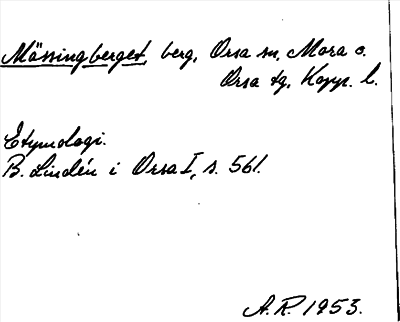 Mässingberget, berg, Orsa sn, Mora o.
Orsa tg, Kopp. l.
Etymologi.
B. Lindén i Orsa I, s. 561.
A.R. 1953.